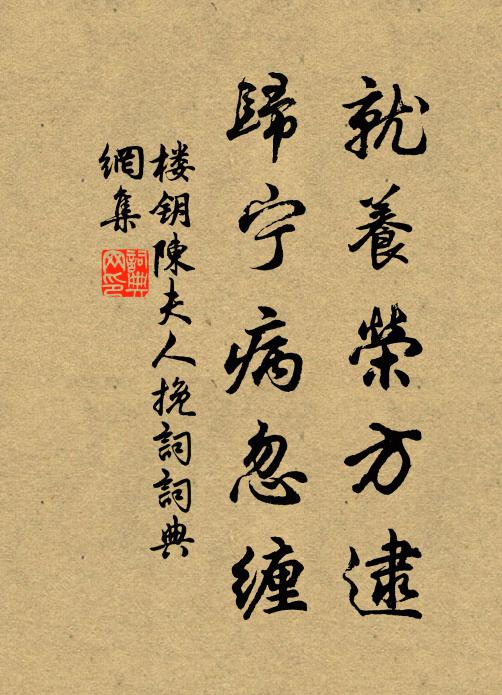 就養榮方逮
歸宁病忽缠
楼钥陳夫人挽詞詞典
網集
詞典
网印